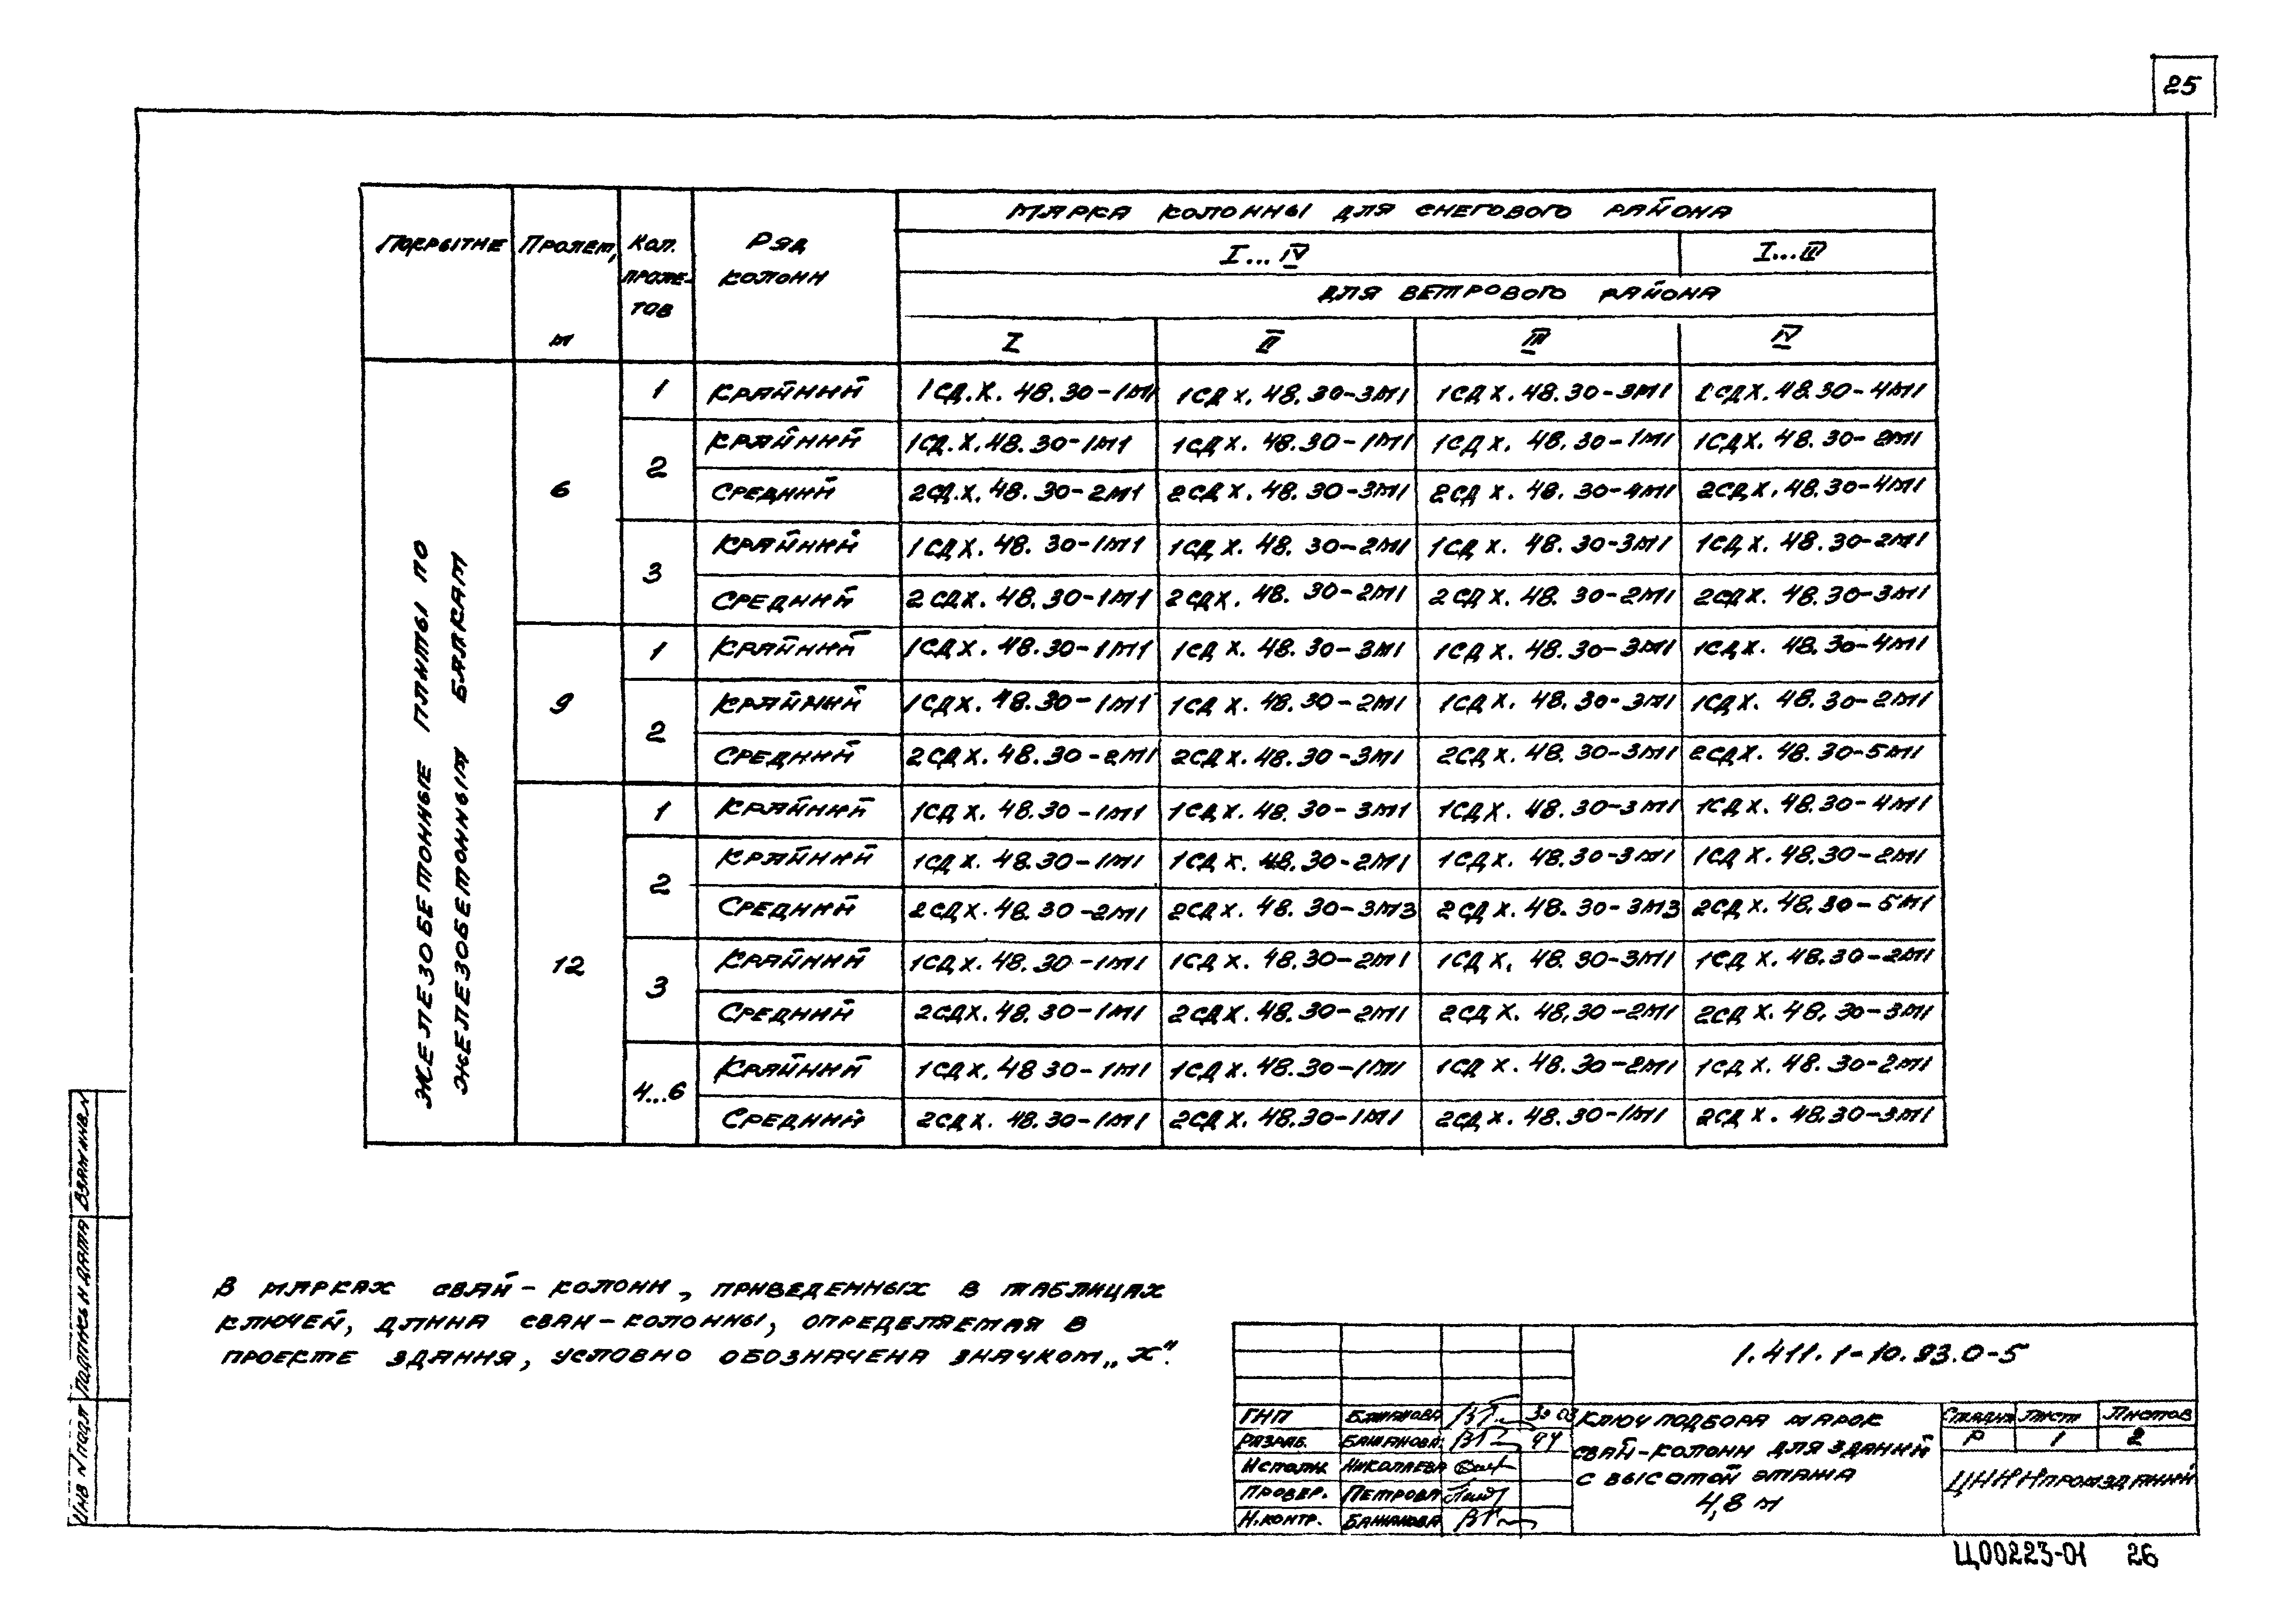 25
МАРКА КОЛОННЫ ДЛЯ СНЕГОВОГО РАЙОНА
ПОКРЫТИЕ ПРОЛЕТ, м КОЛ. ПРОЛЕ-ТОВ РЯД КОЛОНН
I...IV I...III
ДЛЯ ВЕТРОВОГО РАЙОНА
I II III IV
ЖЕЛЕЗОБЕТОННЫЕ ПЛИТЫ ПО
ЖЕЛЕЗОБЕТОННЫМ БАЛКАМ
6
1 КРАЙНИЙ 1СД.Х. 48.30-1М1 1СДХ. 48.30-3М1 1СДХ. 48.30-3М1 1СДХ. 48.30-4М1
2 КРАЙНИЙ 1СД.Х. 48.30-1М1 1СДХ. 48.30-1М1 1СДХ. 48.30-1М1 1СДХ. 48.30-2М1
СРЕДНИЙ 2СД.Х. 48.30-2М1 2СДХ. 48.30-3М1 2СДХ. 48.30-4М1 2СДХ. 48.30-4М1
3 КРАЙНИЙ 1СДХ. 48.30-1М1 1СДХ. 48.30-2М1 1СДХ. 48.30-3М1 1СДХ. 48.30-2М1
СРЕДНИЙ 2СДХ. 48.30-1М1 2СДХ. 48.30-2М1 2СДХ. 48.30-2М1 2СДХ. 48.30-3М1
9
1 КРАЙНИЙ 1СДХ. 48.30-1М1 1СДХ. 48.30-3М1 1СДХ. 48.30-3М1 1СДХ. 48.30-4М1
2 КРАЙНИЙ 1СДХ. 48.30-1М1 1СДХ. 48.30-2М1 1СДХ. 48.30-3М1 1СДХ. 48.30-2М1
СРЕДНИЙ 2СДХ. 48.30-2М1 2СДХ. 48.30-3М1 2СДХ. 48.30-3М1 2СДХ. 48.30-5М1
12
1 КРАЙНИЙ 1СДХ. 48.30-1М1 1СДХ. 48.30-3М1 1СДХ. 48.30-3М1 1СДХ. 48.30-4М1
2 КРАЙНИЙ 1СДХ. 48.30-1М1 1СДХ. 48.30-2М1 1СДХ. 48.30-3М1 1СДХ. 48.30-2М1
СРЕДНИЙ 2СДХ. 48.30-2М1 2СДХ. 48.30-3М3 2СДХ. 48.30-3М3 2СДХ. 48.30-5М1
3 КРАЙНИЙ 1СДХ. 48.30-1М1 1СДХ. 48.30-2М1 1СДХ. 48.30-3М1 1СДХ. 48.30-2М1
СРЕДНИЙ 2СДХ. 48.30-1М1 2СДХ. 48.30-2М1 2СДХ. 48.30-2М1 2СДХ. 48.30-3М1
4...6 КРАЙНИЙ 1СДХ. 48 30-1М1 1СДХ. 48.30-1М1 1СДХ. 48.30-2М1 1СДХ. 48.30-2М1
СРЕДНИЙ 2СДХ. 48.30-1М1 2СДХ. 48.30-1М1 2СДХ. 48.30-1М1 2СДХ. 48.30-3М1
В МАРКАХ СВАЙ-КОЛОНН, ПРИВЕДЕННЫХ В ТАБЛИЦАХ
КЛЮЧЕЙ, ДЛИНА СВАИ-КОЛОННЫ, ОПРЕДЕЛЯЕМАЯ В
ПРОЕКТЕ ЗДАНИЯ, УСЛОВНО ОБОЗНАЧЕНА ЗНАЧКОМ „Х".
ИНВ N ПОДЛ ПОДПИСЬ И ДАТА ВЗАМ ИНВ.N
1.411.1-10.93.0-5
ГИП БАЖАНОВА 30 03
РАЗРАБ. БАЖАНОВА 94
ИСПОЛН. НИКОЛАЕВА
ПРОВЕР. ПЕТРОВА
Н.КОНТР. БАЖАНОВА
КЛЮЧ ПОДБОРА МАРОК
СВАЙ-КОЛОНН ДЛЯ ЗДАНИЙ
С ВЫСОТОЙ ЭТАЖА
4,8 м
СТАДИЯ ЛИСТ ЛИСТОВ
Р 1 2
ЦНИИПРОМЗДАНИЙ
Ц00223-01 26